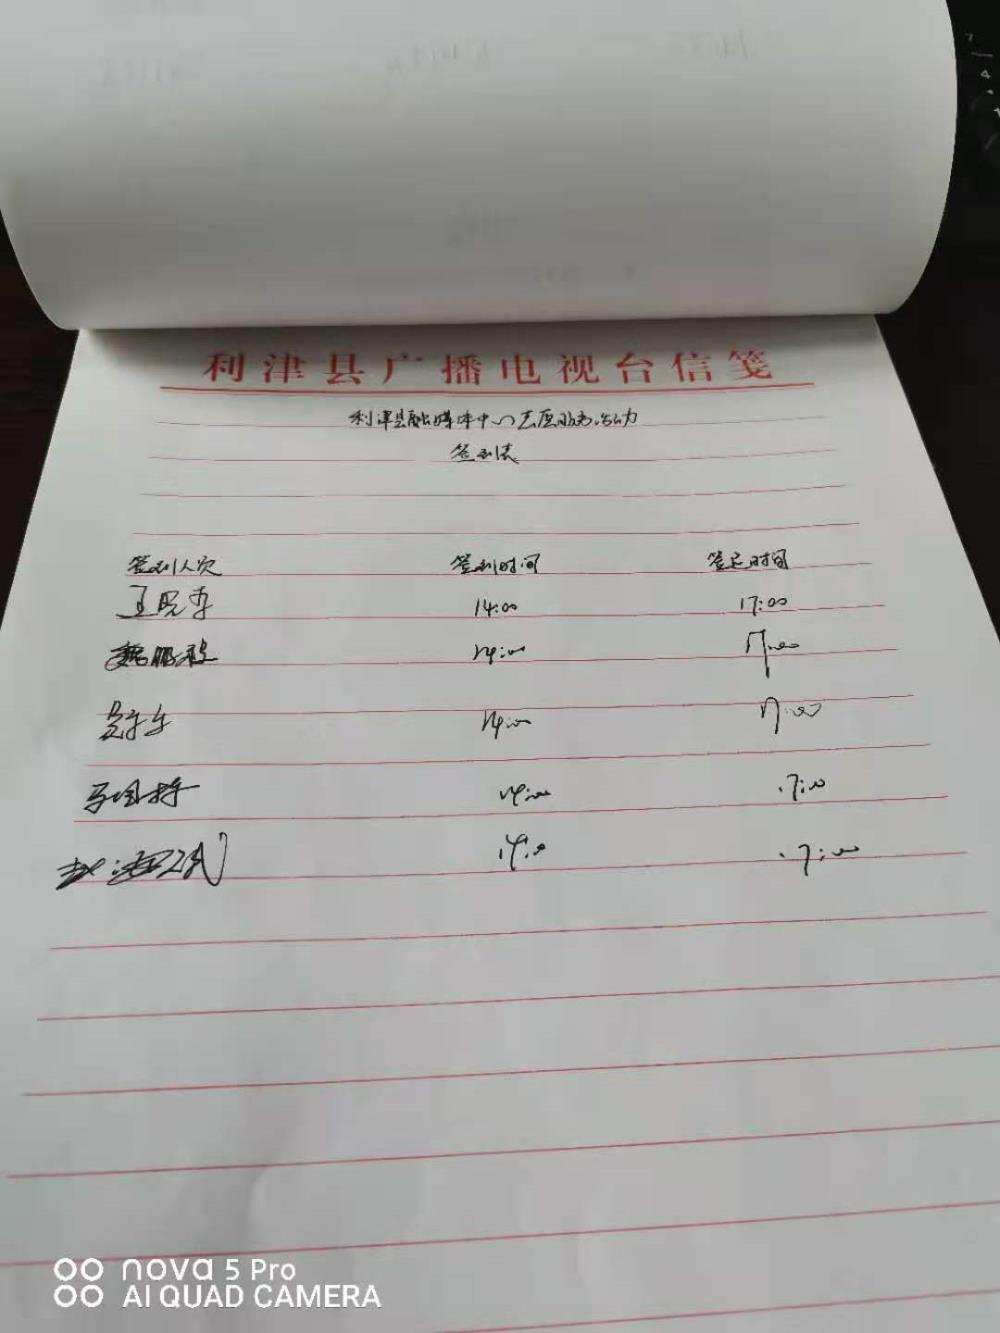 利津县广播电视台信笺
利津县融媒体中心志愿服务活动
签到表
签到人次 签到时间 签退时间
王晓 14:00 17:00
魏鹏程 14:00 17:00
14:00 17:00
14:00 17:00
赵 14:00 17:00
nova 5 Pro
AI QUAD CAMERA